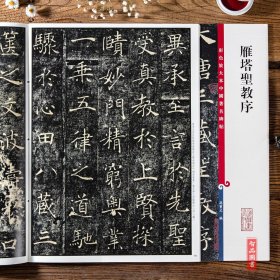 雁塔聖教序
彩色放大本中國著名碑帖
異承至言於先聖
受真教於上賢探
賾妙門精窮奧業
一乘五律之道馳
驟於八藏三
篋之文波